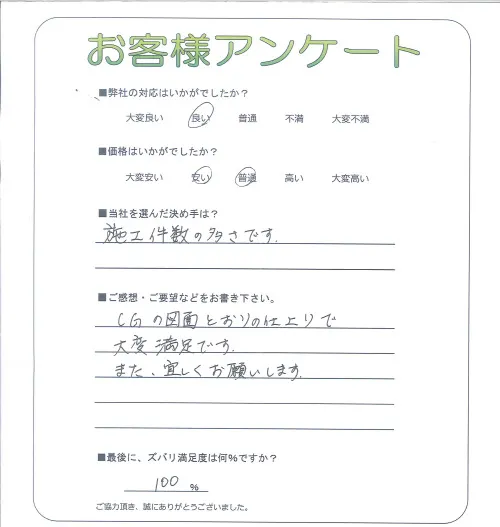 お客様アンケート
■弊社の対応はいかがでしたか？
大変良い 良い 普通 不満 大変不満
■価格はいかがでしたか？
大変安い 安い 普通 高い 大変高い
■当社を選んだ決め手は？
施工件数の多さです.
■ご感想・ご要望などをお書き下さい。
CGの図面とおりの仕上りで
大変満足です.
また、宜しくお願いします.
■最後に、ズバリ満足度は何%ですか？
100 %
ご協力頂き、誠にありがとうございました。